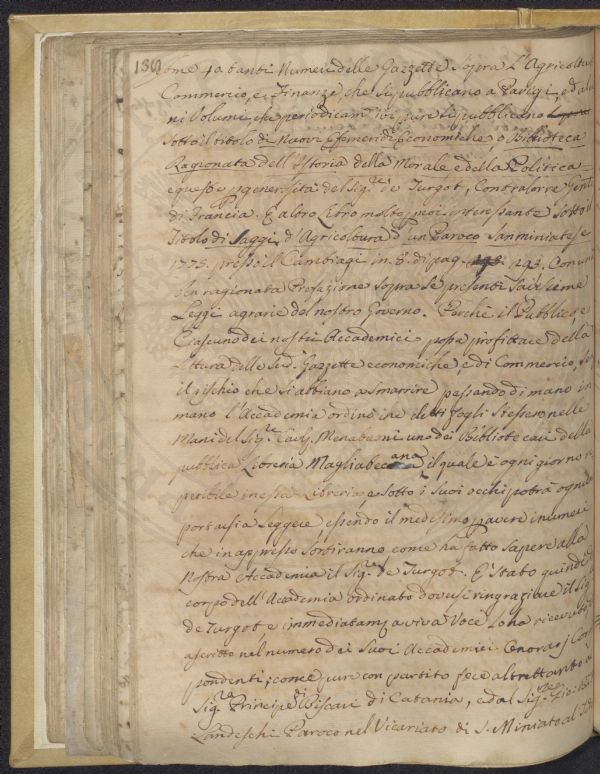 130
ome 4 a tanti Numeri delle Gazzette sopra l'Agricoltu
Commercio, e Finanze, che si pubblicano a Parigi, ed al
ni Volume, che periodicam pure si pubblicano
sotto il titolo di Nuove Efemeridi Economiche o Biblioteca
Ragionata dell'Istoria della Morale e della Politica
e questo generosità del Sig.re de Turgot, Contralor Gen
di Francia. E altro Libro molto interessante sotto il
Titolo di Saggi d'Agricoltura d'un Paroco Sanminiatese
1775. presso il Cambiagi in 8. di pag. 293. Con un
ragionata Prefazione sopra le presenti Savissime
Leggi agrarie del nostro Governo. Perchè il Pubblico, e
Ciascuno dei nostri Accademici possa profittare della
Lettura delle Sud. Gazzette economiche, e di Commercio, 
il rischio che si abbiano a smarrire passando di mano in
mano l'Accademia ordinò che detti fogli stessero nelle
Mani del Sig.re Menabuoni uno dei Bibliotecari della
pubblica Libreria Magliabecana, il quale è ogni giorno re
peribile in essa Libreria, e sotto i suoi occhi potrà ogn
por essa Leggere, essendo il medesimo p avere i numeri
che in appresso sortiranno come ha fatto sapere alla
Nostra Accademia il Sig.re de Turgot. E' stato quindi
corpo dell'Accademia ordinato doversi ringraziare il Sig
de Turgot e immediatam a viva Voce lo ha ricevuto
ascritto nel numero dei suoi Accademici Onorarj Cor
pondenti; come pure con partito fece altrettanto a
Sig.re Principe di Biscari di Catania, ed al Sig.re Gio:
Landeschi Paroco nel Vicariato di S. Miniato al